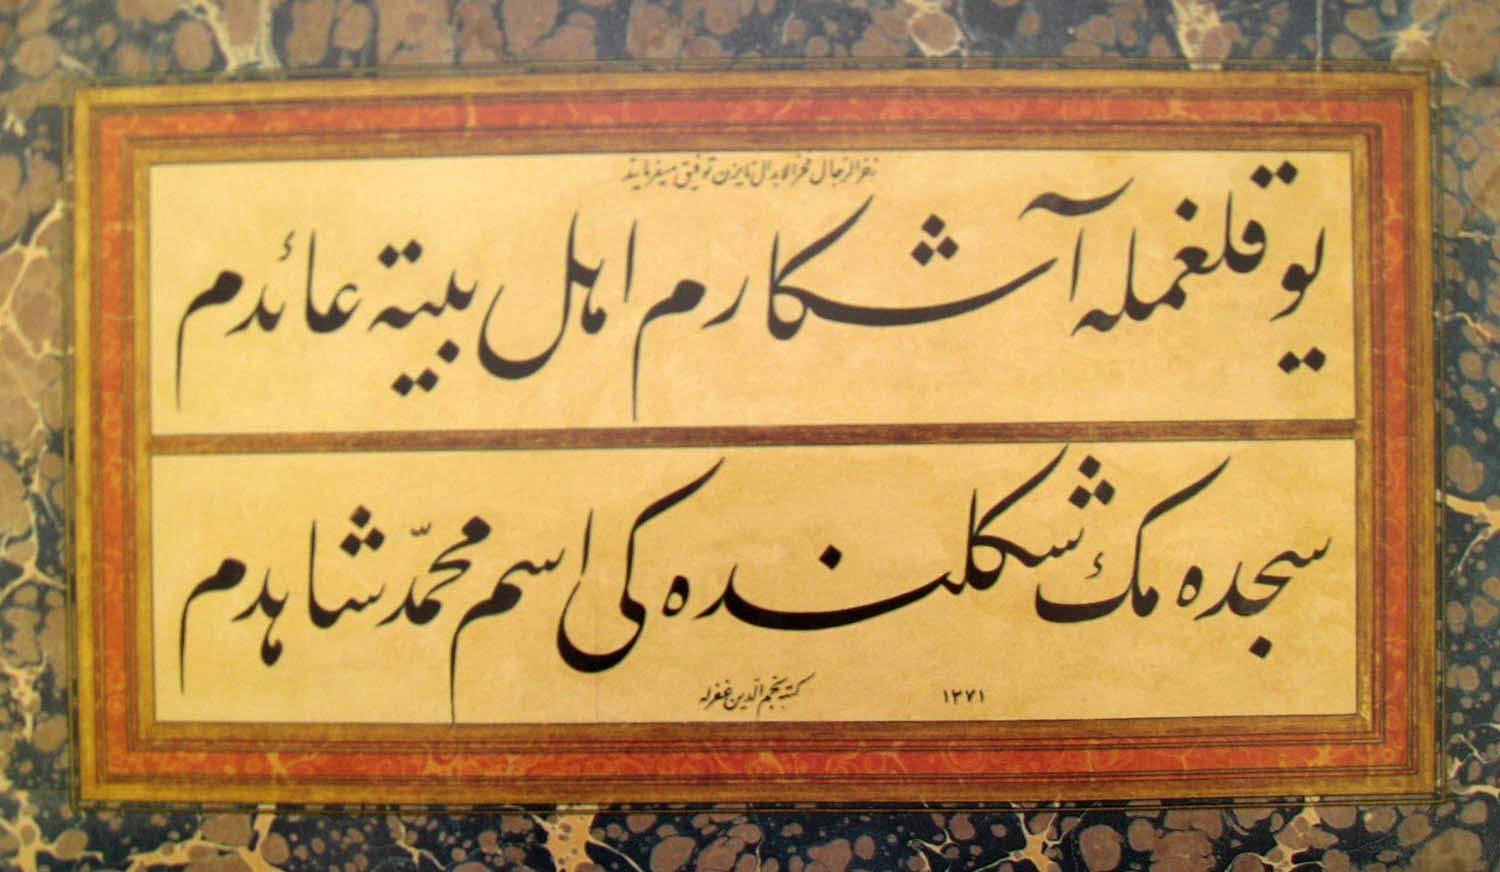 فخر الرجال فخر الابدال نایزن توفیق میفرماید
یوقلغمله آشکارم اهل بیته عائدم
سجده مك شکلنده کی اسم محمّد شاهدم
کتبه نجم الدین غفرله ١٣٧١